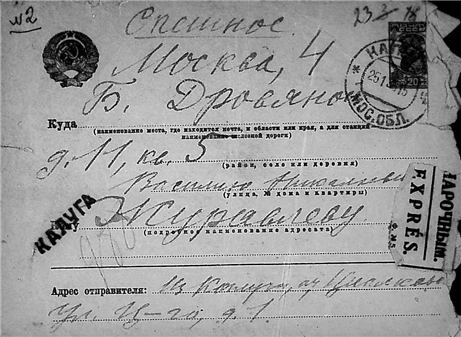 №2
Спешное
23 3/
Москва, 4
КАЛУ
МОС.ОБЛ.
20
Б. Дровяной
Куда
(наименование места, где находится почта, и области или края, а для станций
наименование железной дороги)
д. 11, кв. 5
(район, село или деревня)
Василию
(улица, № дома и квартиры)
КАЛУГА
Журавлеву
(подробное наименование адресата)
НАРОЧНЫМ.
EXPRÈS.
Адрес отправителя: Из Калуги, от Циолковс
Ул. Ц-го, д. 1